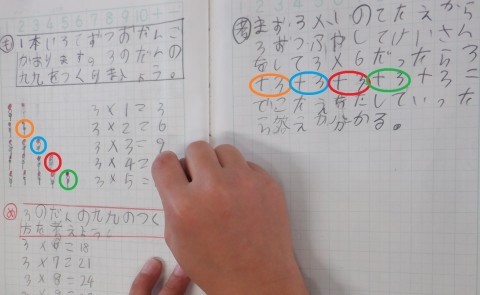 も
1本に3こずつおだんご
があります。3のだんの
九九をつくりましょう。
3×1=3
3×2=6
3×3=9
3×4=
3×5=
め
3のだんの九九のつくり
方を考えよう。
3×6=18
3×7=21
3×8=24
考
まず3×1のこたえから
3ずつふやしてけいさん
をして3×6だったら3
+3+3+3+3+3こ
でこたえをだしていった
ら答えが分かる。